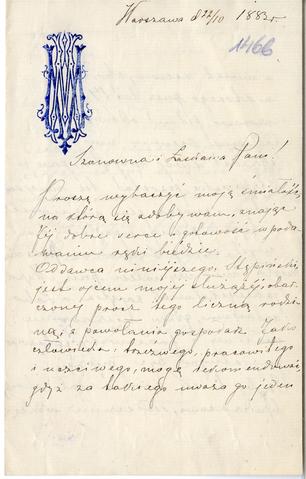 Warszawa d 22/10 1883 r
1466
Szanowna i Łaskawa Pani!
Proszę wybaczyć moją śmiałość,
na którą się zdobywam, znając
Jej dobre serce i gotowość w poda
waniu ręki biédzie.
Oddawca niniejszego, Stępiński,
jest ojcem mojej służącej, obar
czony prócz tego liczną rodzi
ną, z powołania gospodarz. Jako
człowieka trzeźwego, pracowitego
i uczciwego, mogę rekomendować,
gdyż za takiego uważa go jeden